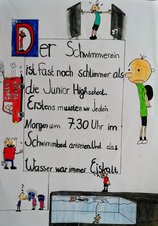 Der Schwimmverein
ist fast noch schlimmer als
die Junior Highschool.
Erstens mussten wir jeden
Morgen um 7.30 Uhr im
Schwimmbad antreten und das
Wasser war immer Eiskalt